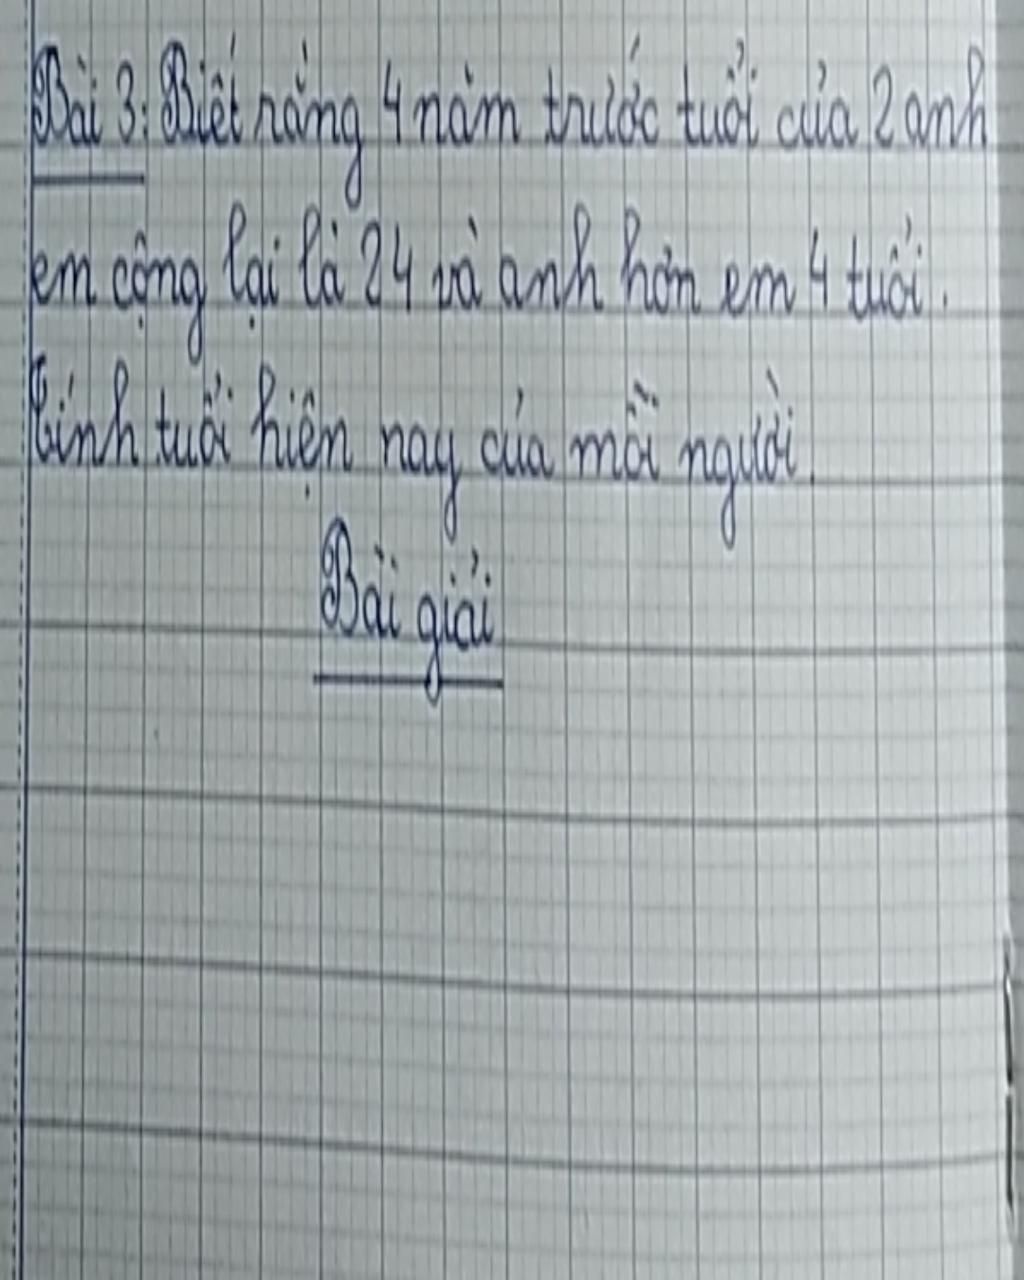 Bài 3: Biết rằng 4 năm trước tuổi của 2 anh
em cộng lại là 24 và anh hơn em 4 tuổi.
Tính tuổi hiện nay của mỗi người.
Bài giải